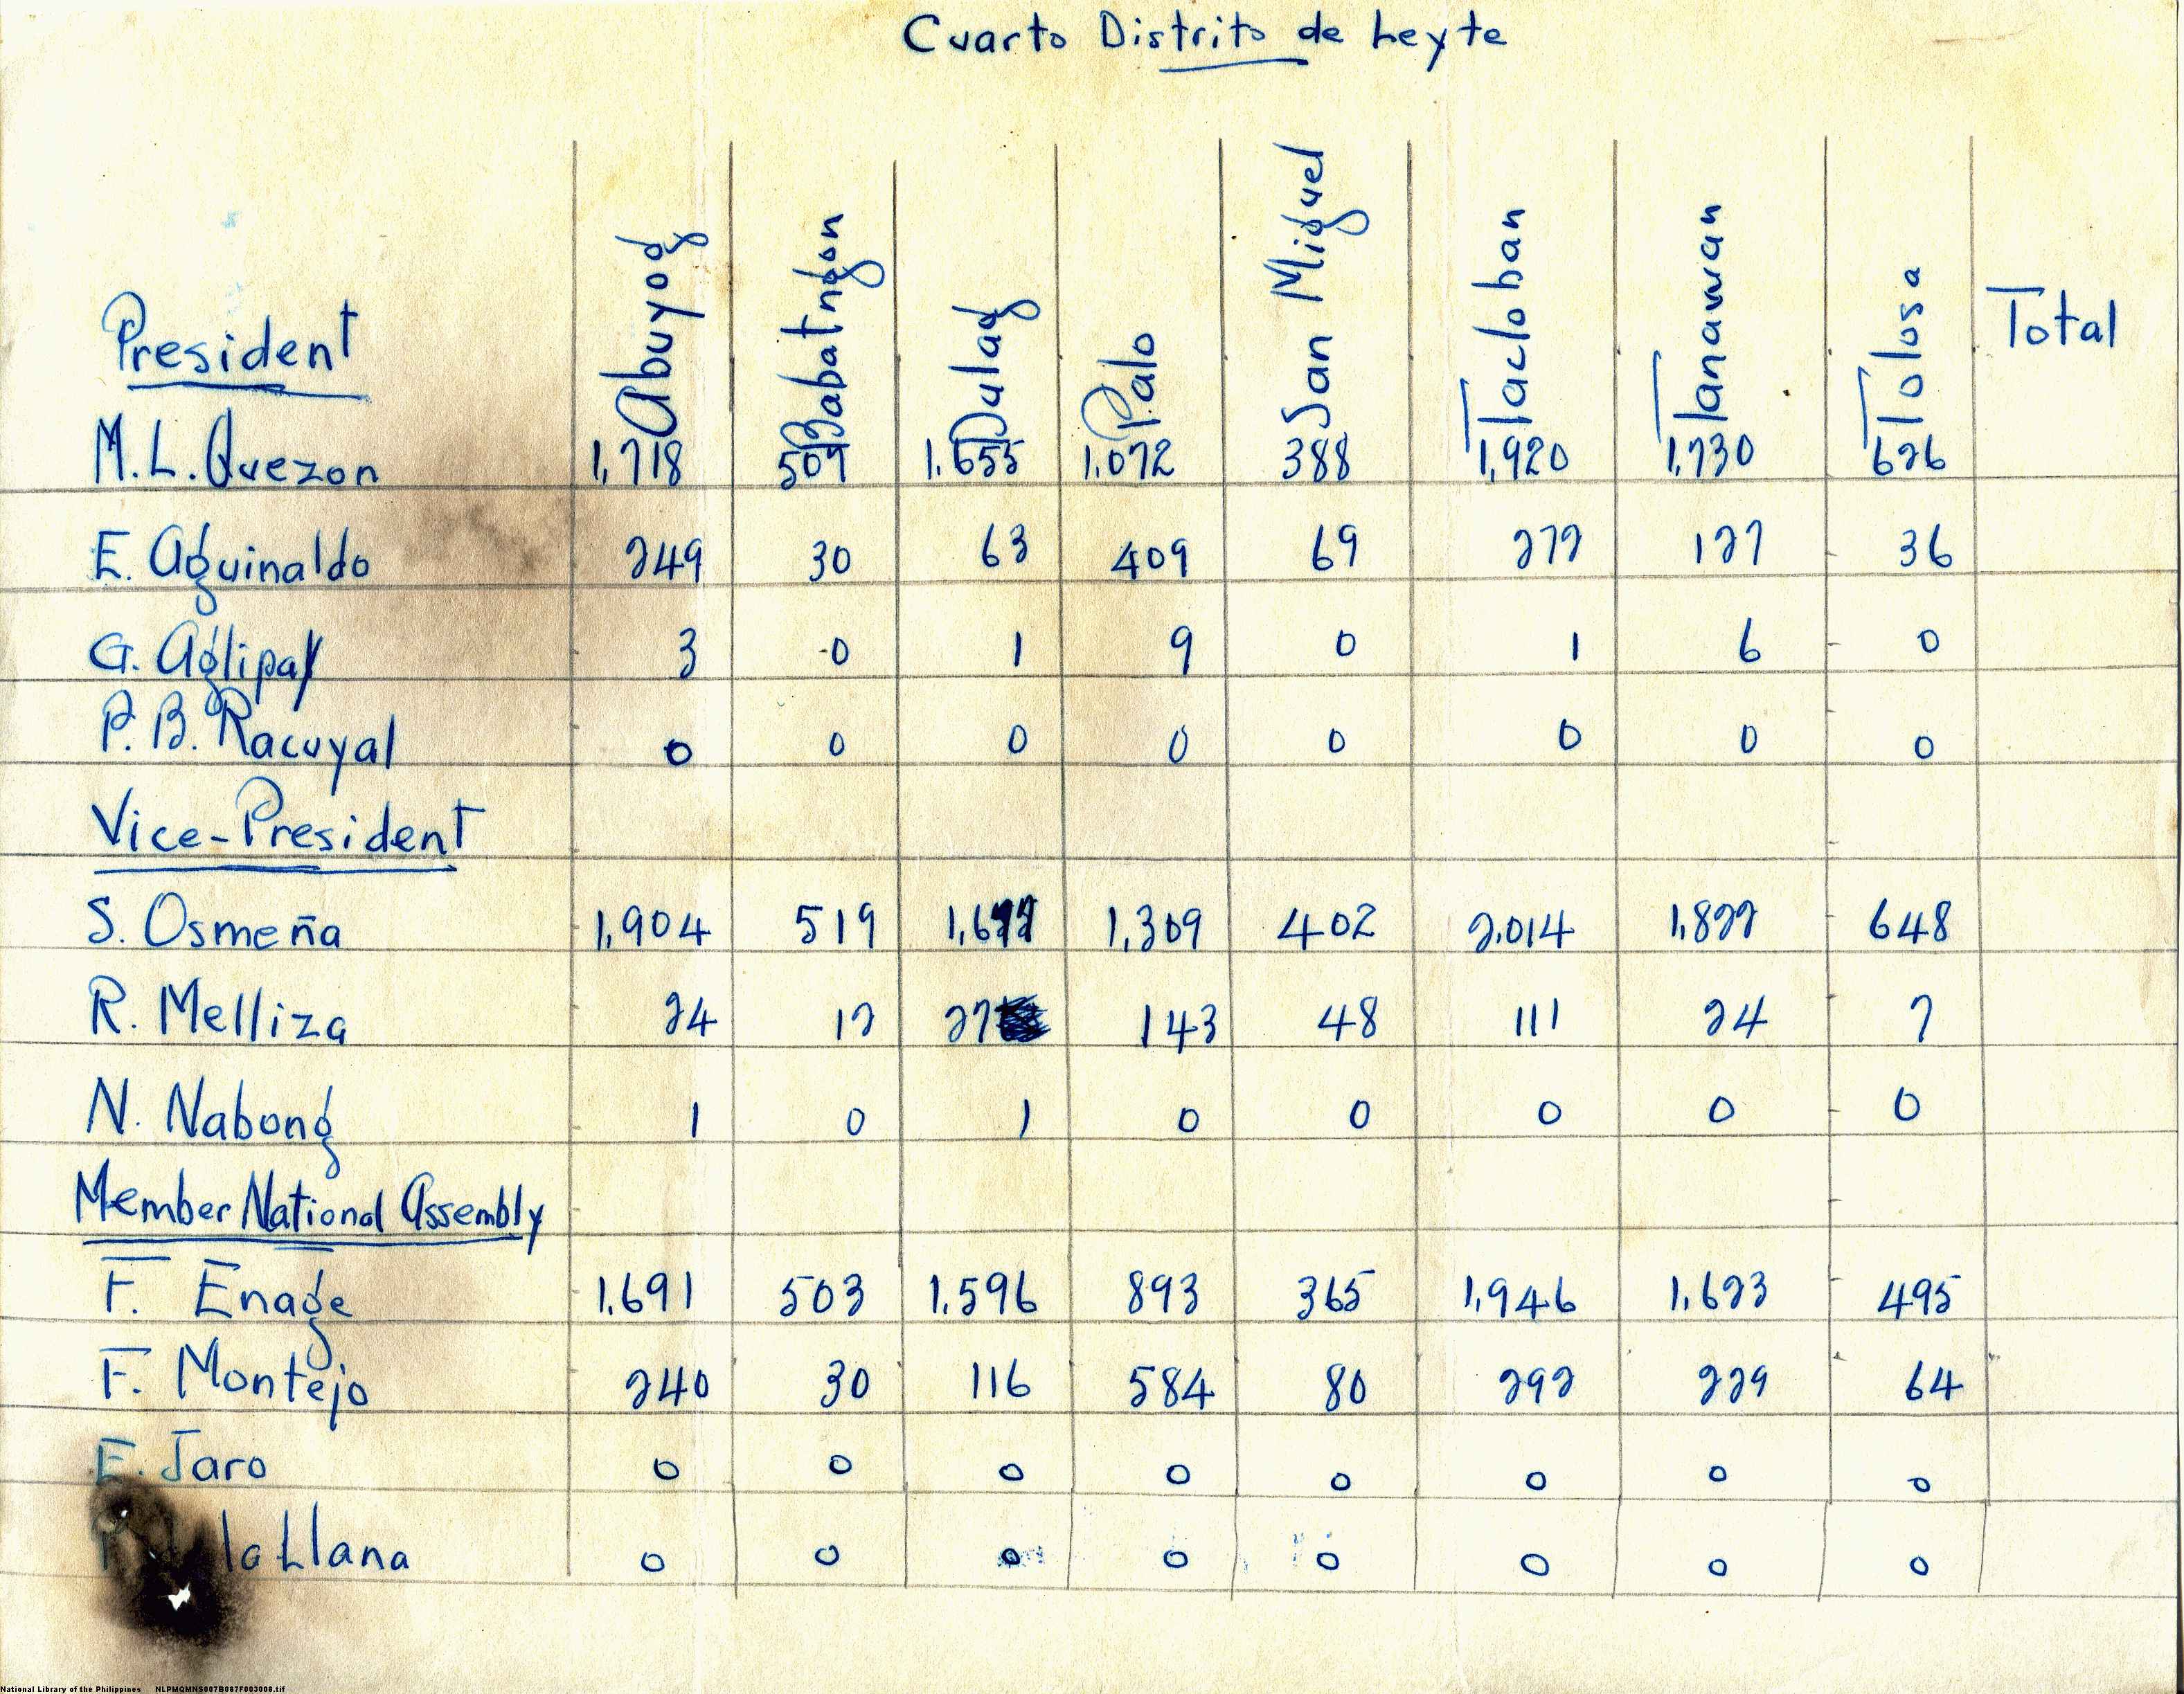 Cuarto Distrito de Leyte
President Abuyog Babatngon Dulag Palo San Miguel Tacloban Tanawan Tolosa Total
M. L. Quezon 1,718 509 1.655 1.072 388 1,920 1,730 626
E. Aguinaldo 249 30 63 409 69 272 127 36
G. Aglipay 3 0 1 9 0 1 6 0
P. B. Racuyal 0 0 0 0 0 0 0 0
Vice-President
S. Osmeña 1,904 519 1,309 402 2.014 1,822 648
R. Melliza 24 12 27 143 48 111 24 7
N. Nabong 1 0 1 0 0 0 0 0
Member National Assembly
F. Enage 1.691 503 1.596 893 365 1,946 1,623 495
F. Montejo 240 30 116 584 80 292 229 64
E. Jaro 0 0 0 0 0 0 0 0
la Llana 0 0 0 0 0 0 0 0
National Library of the Philippines NLPMQMNS007B087F003008.tif